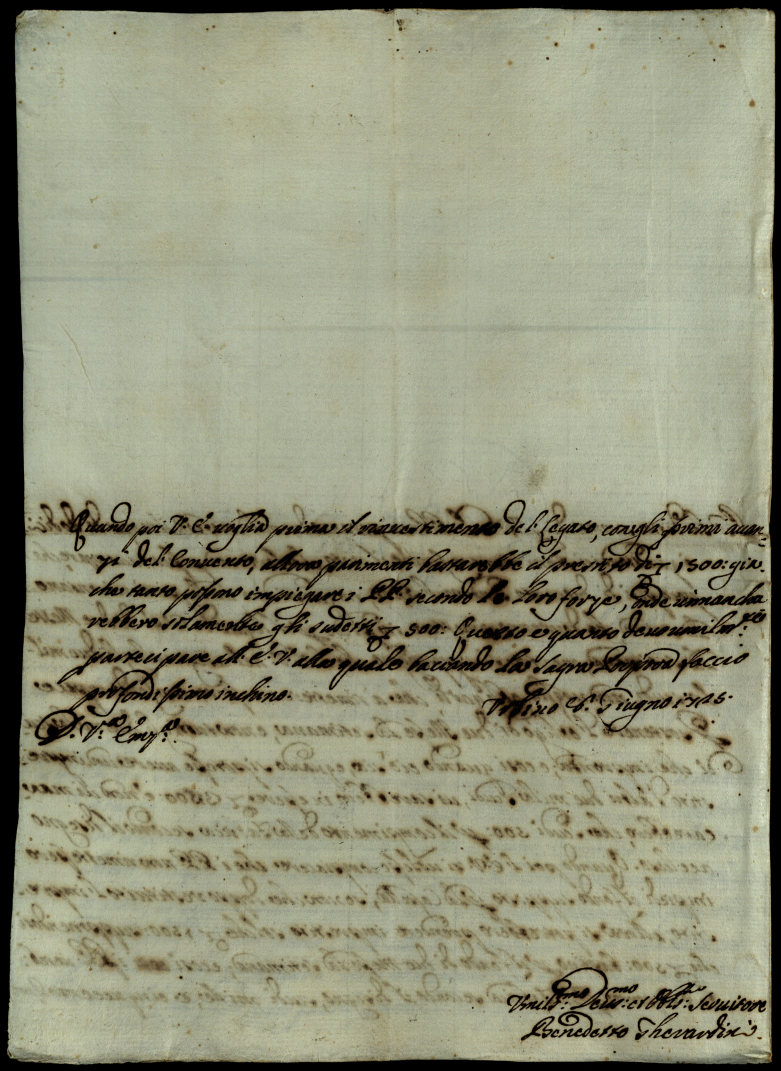 Quando poi V. E. voglia prima il rinvestimento del Legato, con gli primi avan-
zi del Convento, allora parimenti bastarebbe il prestito di 1500: gia
che tanto possono impiegare i PP. secondo le loro forze, onde rimancha
rebbero solamente gli sudetti 500: Questo e quanto devo umilm.te
partecipare all' E. V. alla quale baciando la Sagra Porpora faccio
profondissimo inchino.
Giugno 1725.
D. V.ra Em.za
Umil.mo Dev.mo et Obbl.mo Servitore
Benedetto